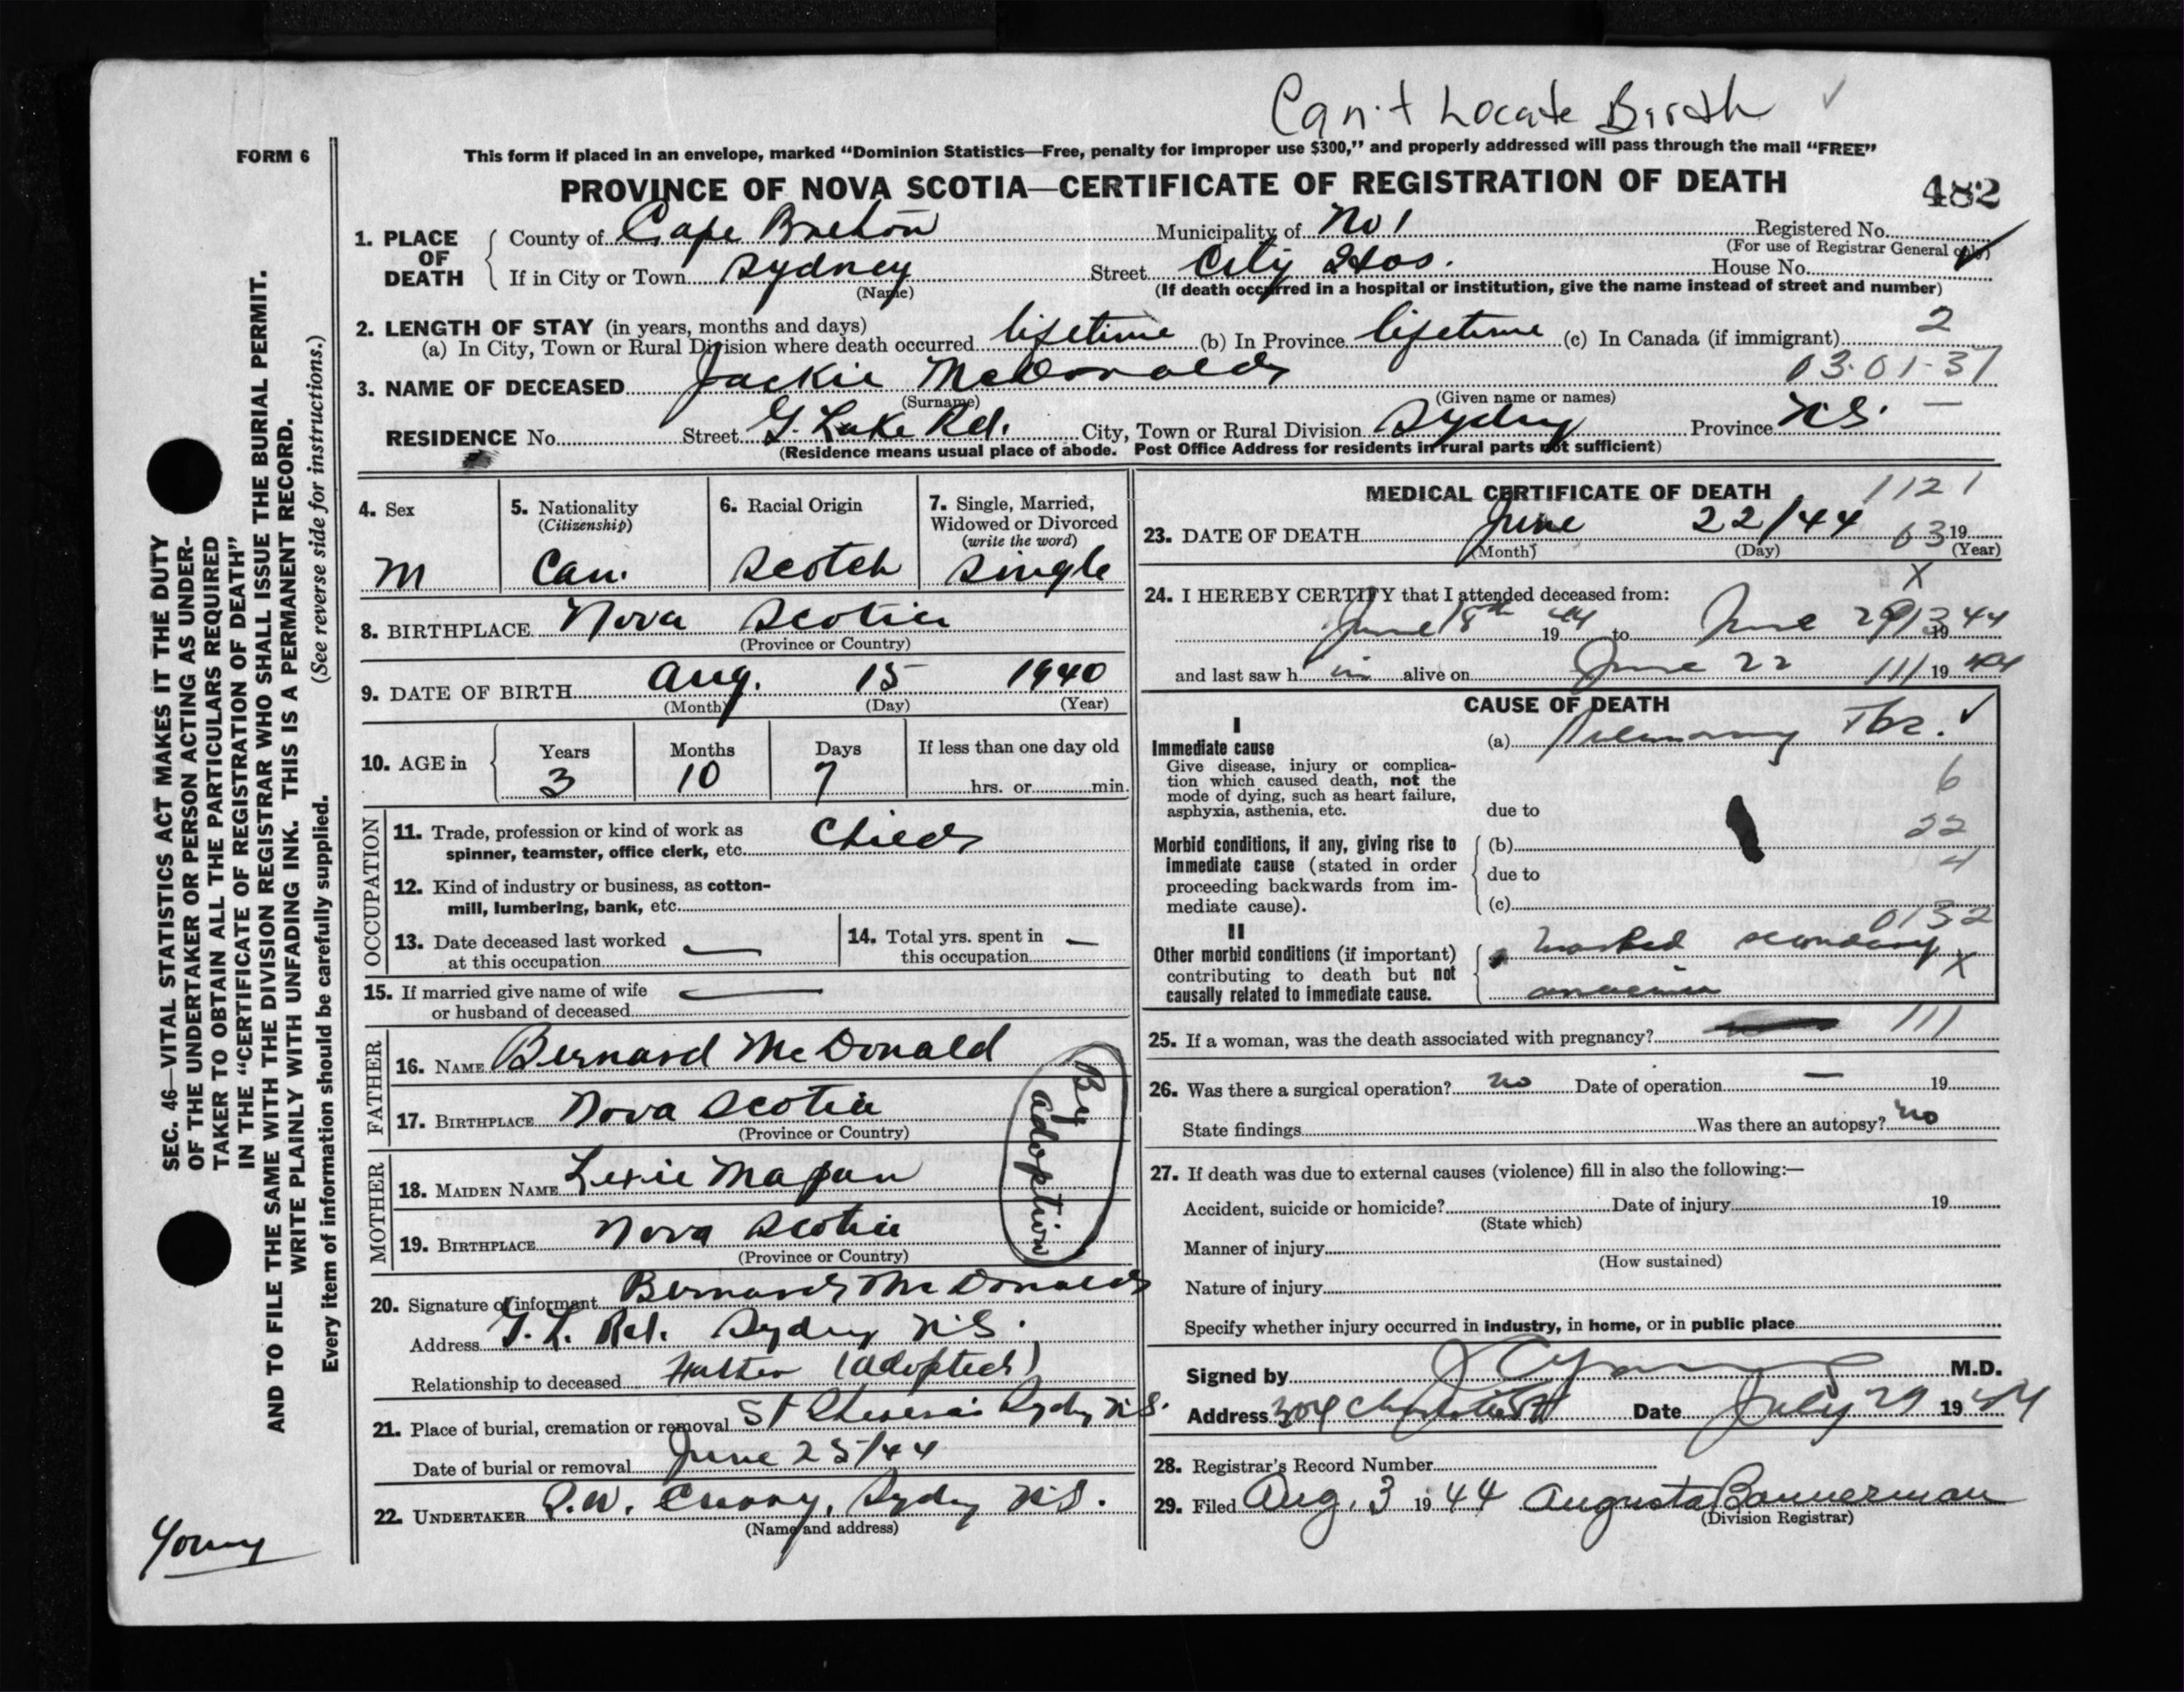 Can't Locate Birth ✓
FORM 6
This form if placed in an envelope, marked “Dominion Statistics—Free, penalty for improper use $300,” and properly addressed will pass through the mail “FREE”
PROVINCE OF NOVA SCOTIA—CERTIFICATE OF REGISTRATION OF DEATH
482
SEC. 46—VITAL STATISTICS ACT MAKES IT THE DUTY
OF THE UNDERTAKER OR PERSON ACTING AS UNDER-
TAKER TO OBTAIN ALL THE PARTICULARS REQUIRED
IN THE “CERTIFICATE OF REGISTRATION OF DEATH”
AND TO FILE THE SAME WITH THE DIVISION REGISTRAR WHO SHALL ISSUE THE BURIAL PERMIT.
WRITE PLAINLY WITH UNFADING INK. THIS IS A PERMANENT RECORD.
Every item of information should be carefully supplied. (See reverse side for instructions.)
1. PLACE OF DEATH
County of Cape Breton Municipality of No 1 Registered No.
(For use of Registrar General only)
If in City or Town Sydney Street City Hos. House No.
(Name) (If death occurred in a hospital or institution, give the name instead of street and number)
2. LENGTH OF STAY (in years, months and days)
(a) In City, Town or Rural Division where death occurred lifetime (b) In Province lifetime (c) In Canada (if immigrant) 2
03-01-37
3. NAME OF DECEASED Jackie McDonald
(Surname) (Given name or names)
RESIDENCE No. Street G. Lake Rd. City, Town or Rural Division Sydney Province N.S. —
(Residence means usual place of abode. Post Office Address for residents in rural parts not sufficient)
4. Sex
M
5. Nationality
(Citizenship)
Can.
6. Racial Origin
Scotch
7. Single, Married,
Widowed or Divorced
(write the word)
Single
8. BIRTHPLACE Nova Scotia
(Province or Country)
9. DATE OF BIRTH Aug. 15 1940
(Month) (Day) (Year)
10. AGE in
Years Months Days If less than one day old
3 10 7 hrs. or min.
OCCUPATION
11. Trade, profession or kind of work as
spinner, teamster, office clerk, etc. Child
12. Kind of industry or business, as cotton-
mill, lumbering, bank, etc.
13. Date deceased last worked —
at this occupation
14. Total yrs. spent in —
this occupation
15. If married give name of wife —
or husband of deceased
FATHER
16. NAME Bernard McDonald
17. BIRTHPLACE Nova Scotia
(Province or Country)
MOTHER
18. MAIDEN NAME Lexie
19. BIRTHPLACE Nova Scotia
(Province or Country)
By
adoption
20. Signature of informant Bernard McDonald
Address G. L. Rd. Sydney N.S.
Relationship to deceased Father (adopted)
21. Place of burial, cremation or removal St Theresa's Sydney N.S.
Date of burial or removal June 25/44
22. UNDERTAKER Sydney N.S.
(Name and address)
Young
MEDICAL CERTIFICATE OF DEATH
1121
23. DATE OF DEATH June 22/44 19
63
(Month) (Day) (Year)
X
24. I HEREBY CERTIFY that I attended deceased from:
June 18th 1944 to June 19 44
and last saw him alive on June 22 19 44
111
CAUSE OF DEATH
I
Immediate cause
Give disease, injury or complica-
tion which caused death, not the
mode of dying, such as heart failure,
asphyxia, asthenia, etc.
(a) Pulmonary Tbc. ✓
6
due to
Morbid conditions, if any, giving rise to
immediate cause (stated in order
proceeding backwards from im-
mediate cause).
22
(b)
4
due to
(c)
0132
II
Other morbid conditions (if important)
contributing to death but not
causally related to immediate cause.
marked secondary
anaemia
X
25. If a woman, was the death associated with pregnancy?
111
26. Was there a surgical operation? no Date of operation — 19
State findings Was there an autopsy? no
27. If death was due to external causes (violence) fill in also the following:—
Accident, suicide or homicide? Date of injury 19
(State which)
Manner of injury
(How sustained)
Nature of injury
Specify whether injury occurred in industry, in home, or in public place
Signed by Young M.D.
Address 304 Charlotte St Date July 29 1944
28. Registrar's Record Number
29. Filed Aug. 3 1944 Augusta Bannerman
(Division Registrar)